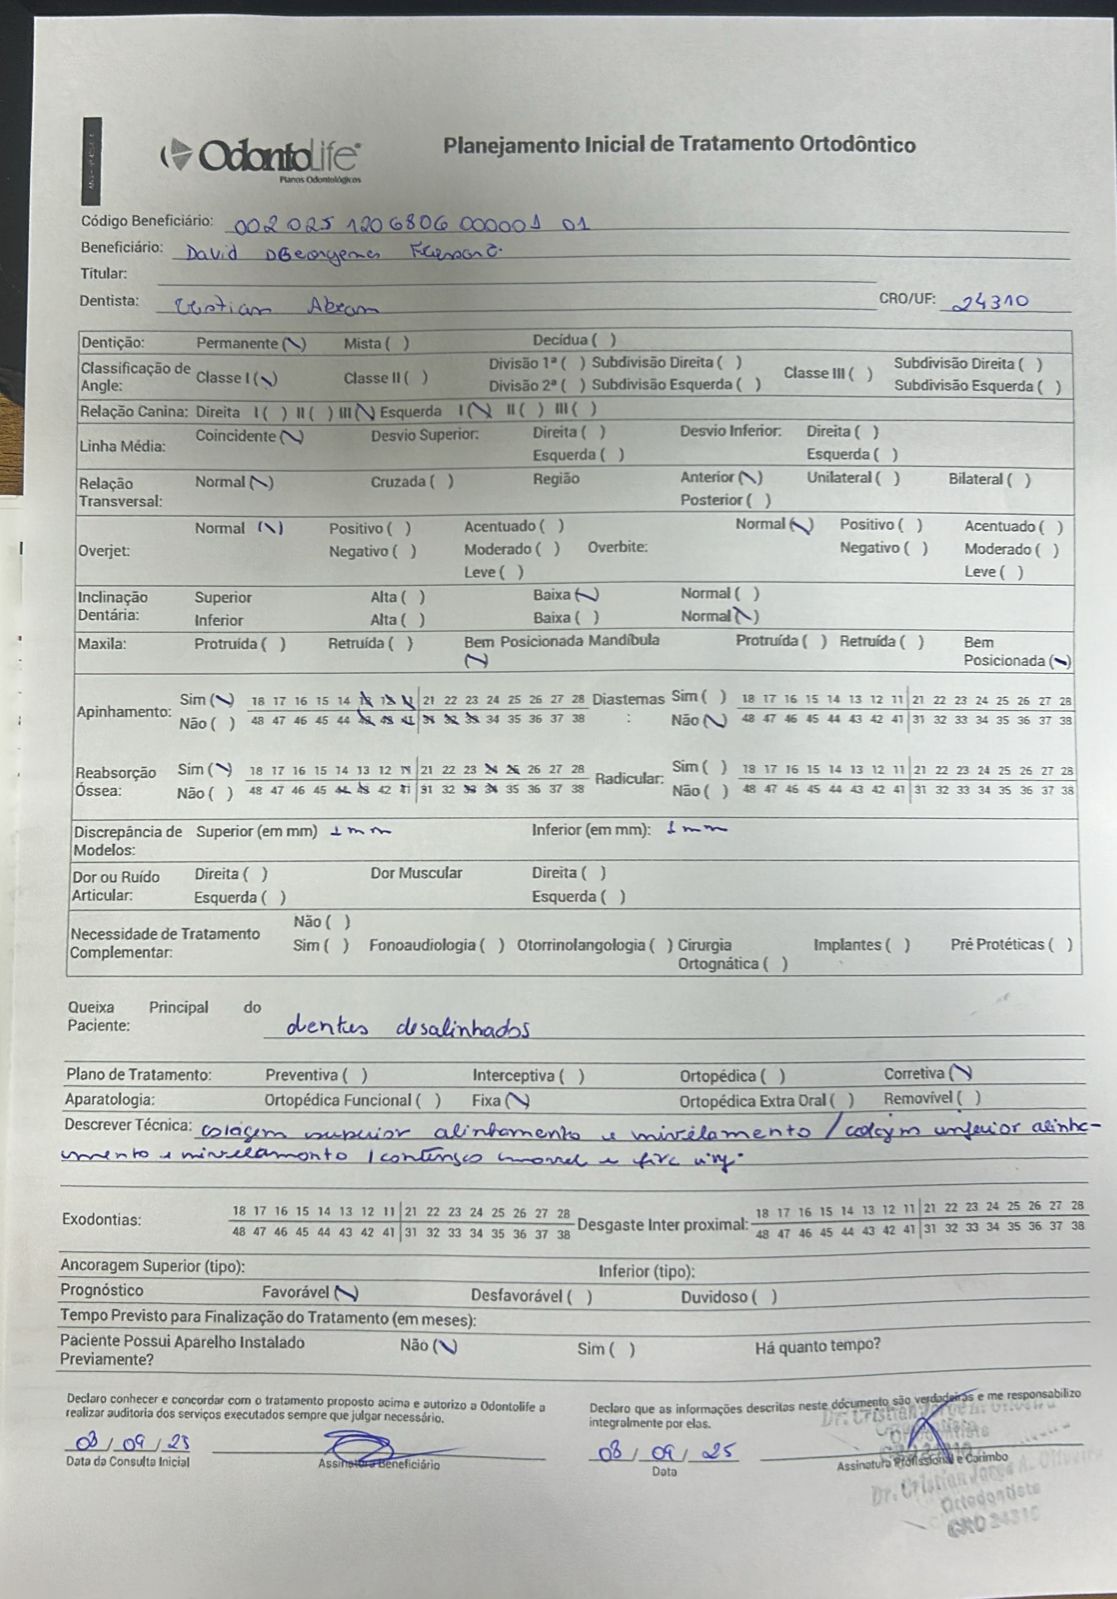 OdontoLife
Planos Odontológicos
Planejamento Inicial de Tratamento Ortodôntico
Código Beneficiário: 002025 1206806 000001 01
Beneficiário: David
Titular:
Dentista: CRO/UF: 24310
Dentição: Permanente (\) Mista ( ) Decídua ( )
Classificação de Angle: Classe I (\) Classe II ( ) Divisão 1ª ( ) Subdivisão Direita ( ) Classe III ( ) Subdivisão Direita ( )
Divisão 2ª ( ) Subdivisão Esquerda ( ) Subdivisão Esquerda ( )
Relação Canina: Direita I ( ) II ( ) III (\) Esquerda I (\) II ( ) III ( )
Linha Média: Coincidente (\) Desvio Superior: Direita ( ) Desvio Inferior: Direita ( )
Esquerda ( ) Esquerda ( )
Relação Transversal: Normal (\) Cruzada ( ) Região Anterior (\) Unilateral ( ) Bilateral ( )
Posterior ( )
Overjet: Normal (\) Positivo ( ) Acentuado ( ) Overbite: Normal (\) Positivo ( ) Acentuado ( )
Negativo ( ) Moderado ( ) Negativo ( ) Moderado ( )
Leve ( ) Leve ( )
Inclinação Dentária: Superior Alta ( ) Baixa (\) Normal ( )
Inferior Alta ( ) Baixa ( ) Normal (\)
Maxila: Protruída ( ) Retruída ( ) Bem Posicionada (\) Mandíbula Protruída ( ) Retruída ( ) Bem Posicionada (\)
Apinhamento: Sim (\) 18 17 16 15 14 13 12 11 21 22 23 24 25 26 27 28 Diastemas : Sim ( ) 18 17 16 15 14 13 12 11 21 22 23 24 25 26 27 28
Não ( ) 48 47 46 45 44 43 42 41 31 32 33 34 35 36 37 38 Não (\) 48 47 46 45 44 43 42 41 31 32 33 34 35 36 37 38
Reabsorção Óssea: Sim (\) 18 17 16 15 14 13 12 11 21 22 23 24 25 26 27 28 Radicular: Sim ( ) 18 17 16 15 14 13 12 11 21 22 23 24 25 26 27 28
Não ( ) 48 47 46 45 44 43 42 41 31 32 33 34 35 36 37 38 Não ( ) 48 47 46 45 44 43 42 41 31 32 33 34 35 36 37 38
Discrepância de Modelos: Superior (em mm) 1mm Inferior (em mm): 1mm
Dor ou Ruído Articular: Direita ( ) Dor Muscular Direita ( )
Esquerda ( ) Esquerda ( )
Necessidade de Tratamento Complementar: Não ( )
Sim ( ) Fonoaudiologia ( ) Otorrinolangologia ( ) Cirurgia Ortognática ( ) Implantes ( ) Pré Protéticas ( )
Queixa Principal do Paciente: dentes desalinhados
Plano de Tratamento: Preventiva ( ) Interceptiva ( ) Ortopédica ( ) Corretiva (\)
Aparatologia: Ortopédica Funcional ( ) Fixa (\) Ortopédica Extra Oral ( ) Removível ( )
Descrever Técnica: colagem superior alinhamento e nivelamento / colagem inferior alinha-
mento e nivelamento /
Exodontias: 18 17 16 15 14 13 12 11 21 22 23 24 25 26 27 28 Desgaste Inter proximal: 18 17 16 15 14 13 12 11 21 22 23 24 25 26 27 28
48 47 46 45 44 43 42 41 31 32 33 34 35 36 37 38 48 47 46 45 44 43 42 41 31 32 33 34 35 36 37 38
Ancoragem Superior (tipo): Inferior (tipo):
Prognóstico Favorável (\) Desfavorável ( ) Duvidoso ( )
Tempo Previsto para Finalização do Tratamento (em meses):
Paciente Possui Aparelho Instalado Previamente? Não (\) Sim ( ) Há quanto tempo?
Declaro conhecer e concordar com o tratamento proposto acima e autorizo a Odontolife a
realizar auditoria dos serviços executados sempre que julgar necessário.
Declaro que as informações descritas neste documento são verdadeiras e me responsabilizo
integralmente por elas.
03/09/25
Data da Consulta Inicial
Assinatura Beneficiário
03/09/25
Data
Assinatura Profissional e Carimbo
Dr. Cristian
Ortodontista
CRO 24310